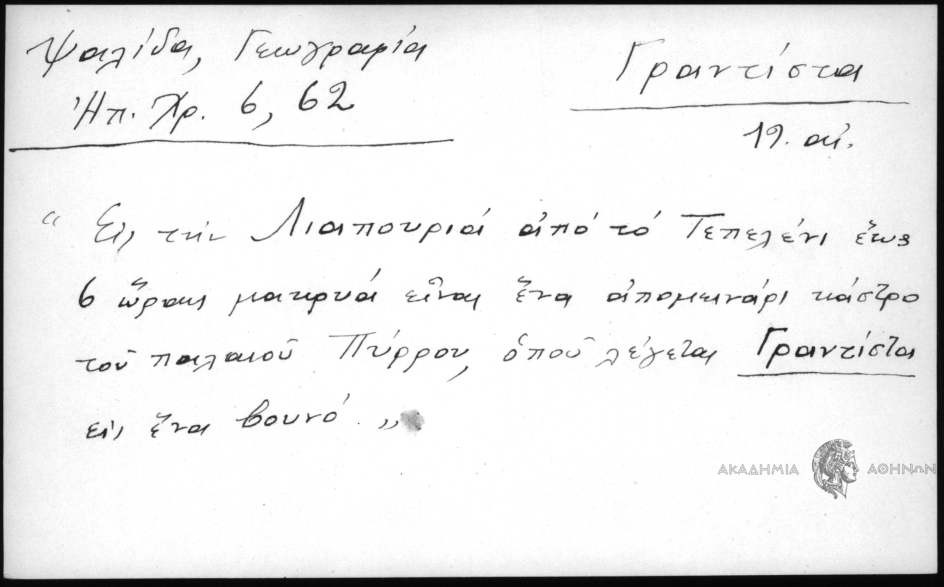 Ψαλίδα, Γεωγραφία
Ἠπ. Χρ. 6, 62
Γραντίστα
19. αἰ.
“ Εἰς τὴν Λιαπουριά ἀπό τό Τεπελένι ἕως
6 ὥραις μακρυά εἶναι ἕνα ἀπομεινάρι κάστρο
τοῦ παλαιοῦ Πύρρου, ὁποῦ λέγεται Γραντίστα
εἰς ἕνα βουνό. „
ΑΚΑΔΗΜΙΑ ΑΘΗΝΩΝ